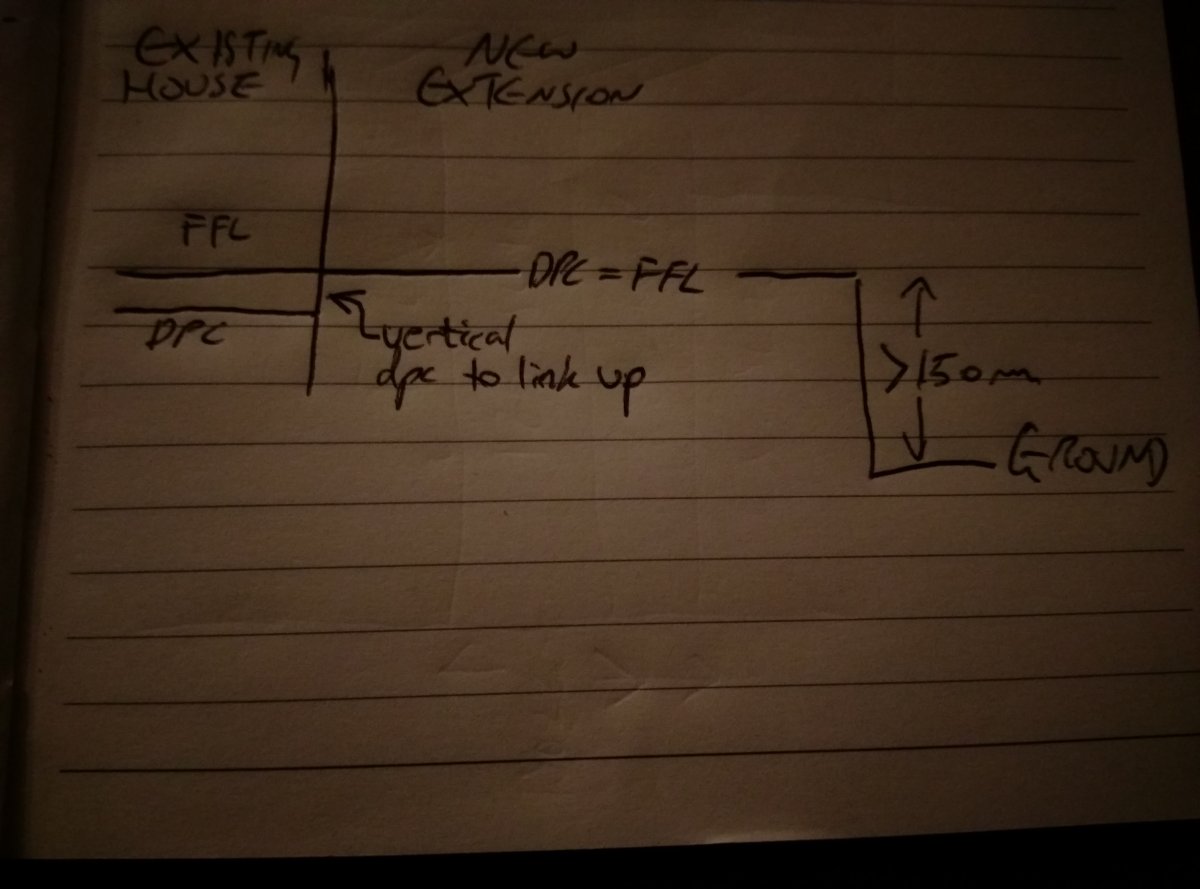 EXISTING
HOUSE
NEW
EXTENSION
FFL
DPC = FFL
DPC
vertical
dpc to link up
>150mm
GROUND